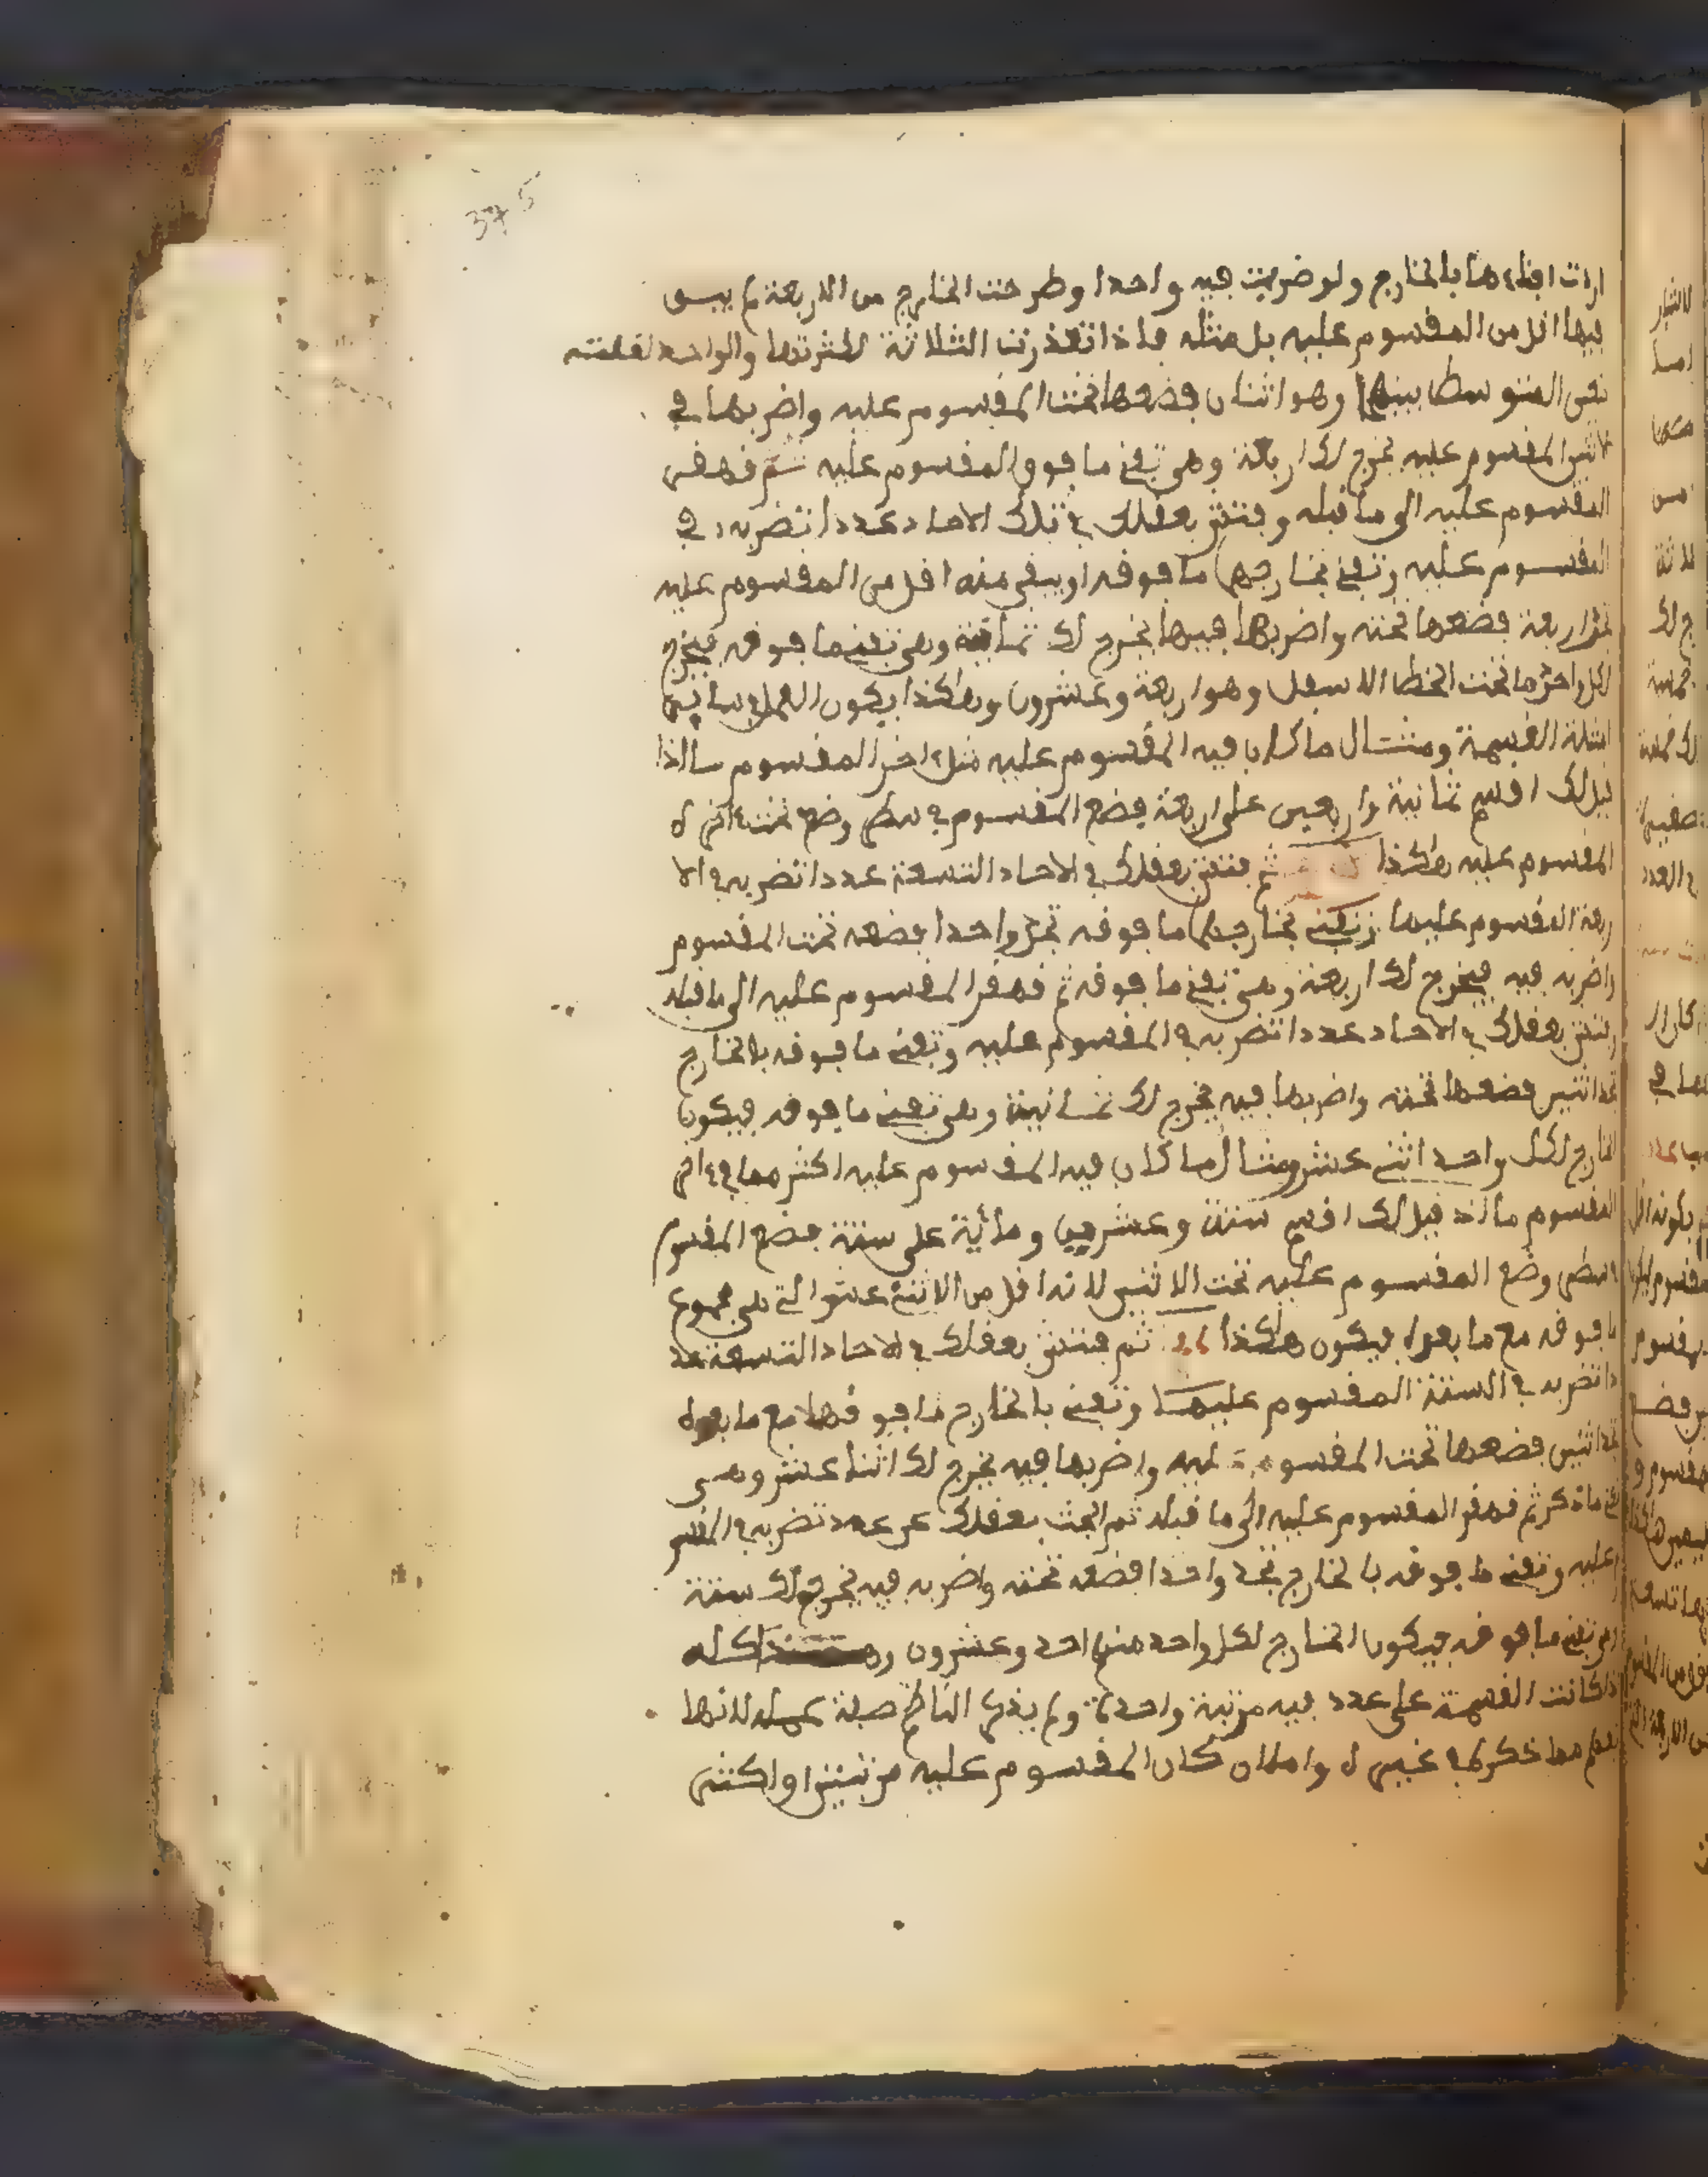 375
اردت افناءها بالخارج ولو ضربت فيه واحدا وطرحت الخارج من الاربعة لم يبق
فيها اقل من المقسوم عليه بل مثله فاذا تعذرت الثلاثة لكثرتها والواحد لقلته
تعين المتوسط بينهما وهو اثنان فضعها تحت المقسوم عليه واضربها في
المقسوم عليه يخرج لك اربعة وهي تفني ما فوق المقسوم عليه ثم قهقر
المقسوم عليه الى ما قبله وفتش بعقلك في تلك الاحاد عددا تضربه في
المقسوم عليه وتفني بخارجها ما فوقه او يبقى منه اقل من المقسوم عليه
تجد اربعة فضعها تحته واضربها فيها يخرج لك ثمانية وهي تفني ما فوقه فيخرج
لكل واحد ما تحت الخط الاسفل وهو اربعة وعشرون وهكذا يكون العمل في ساير
امثلة القسمة ومثال ما كان فيه المقسوم عليه مثل اخر المقسوم ما اذا
قيل لك اقسم ثمانية واربعين على اربعة فضع المقسوم في سطر وضع تحت اخره
المقسوم عليه هكذا ثم فتش بعقلك في الاحاد التسعة عددا تضربه في الا
ربعة المقسوم عليها وتفني بخارجها ما فوقه تجد واحدا فضعه تحت المقسوم
واضربه فيه فيخرج لك اربعة وهي تفني ما فوقه ثم قهقر المقسوم عليه الى ما قبله
وفتش بعقلك في الاحاد عددا تضربه في المقسوم عليه وتفني ما فوقه بالخارج
تجد اثنين فضعها تحته واضربها فيه يخرج لك ثمانية وهي تفني ما فوقه فيكون
الخارج لكل واحد اثني عشر ومثال ما كان فيه المقسوم عليه اكثر مما في اخر
المقسوم ما اذا قيل لك اقسم ستة وعشرين ومائة على ستة فضع المقسوم
في سطر وضع المقسوم عليه تحت الاثنين لانه اقل من الاثني عشر التي هي مجموع
ما فوقه مع ما بعده فيكون هكذا ثم فتش بعقلك في الاحاد التسعة عد
دا تضربه في الستة المقسوم عليها وتفني بالخارج ما فوقها مع ما بعده
تجد اثنين فضعها تحت المقسوم عليه واضربها فيه يخرج لك اثنا عشر وهي
تفني ما ذكر ثم قهقر المقسوم عليه الى ما قبله ثم ابحث بعقلك عن عدد تضربه في المقسو
م عليه وتفني ما فوقه بالخارج تجد واحدا فضعه تحته واضربه فيه يخرج لك ستة
وهي تفني ما فوقه فيكون الخارج لكل واحد منهم احد وعشرون كله
اذا كانت القسمة على عدد فيه مرتبة واحدة ولم يذكر الناظم صفة عمله لانها
تعلم مما ذكره في غيره واما ان كان المقسوم عليه مرتبتين او اكثر